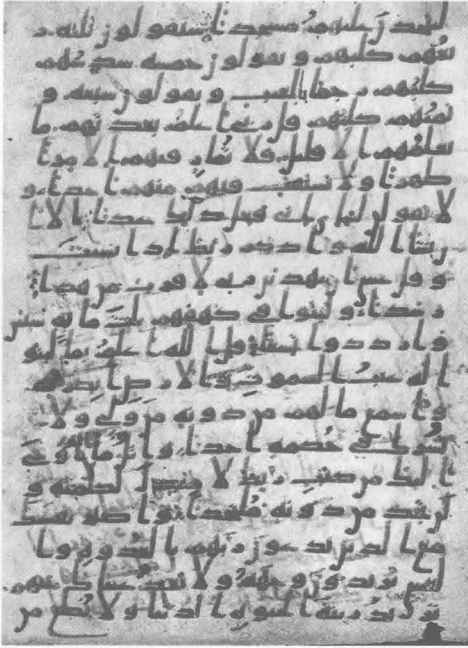 لنتخذن عليهم مسجدا سيقولون ثلثه ر
بعهم كلبهم ويقولون خمسه سدسهم
كلبهم رجما بالغيب ويقولون سبعه و
ثمنهم كلبهم قل ربي اعلم بعدتهم ما
يعلمهم الا قليل فلا تمار فيهم الا مرا
طهرا ولا تستفت فيهم منهم احدا و
لا تقولن لشاي اني فاعل ذلك غدا الا ان
يشا الله واذكر ربك اذا نسيت
وقل عسى ان يهدين ربي لاقرب من هذا
رشدا ولبثوا في كهفهم ثلث مايه سنين
وازدادوا تسعا قل الله اعلم بما لبثوا
له غيب السموت والارض ابصر به
واسمع ما لهم من دونه من ولي ولا
يشرك في حكمه احدا واتل ما اوحي
اليك من كتب ربك لا مبدل لكلمته و
لن تجد من دونه ملتحدا واصبر نفسك
مع الذين يدعون ربهم بالغدوه وا
لعشي يريدون وجهه ولا تعد عيناك عنهم
تريد زينه الحيوه الدنيا ولا تطع من